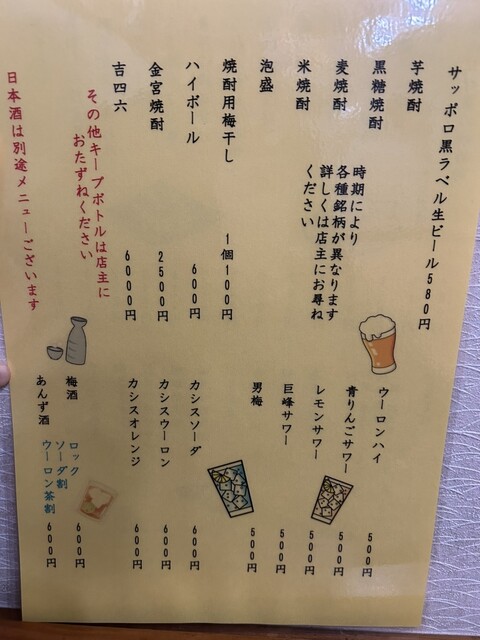 サッポロ黒ラベル生ビール580円
芋焼酎
黒糖焼酎
麦焼酎
米焼酎
時期により
各種銘柄が異なります
詳しくは店主にお尋ね
ください
泡盛
焼酎用梅干し 1個100円
ハイボール 600円
金宮焼酎 2500円
吉四六 6000円
その他キープボトルは店主に
おたずねください
日本酒は別途メニューございます
ウーロンハイ 500円
青りんごサワー 500円
レモンサワー 500円
巨峰サワー 500円
男梅 500円
カシスソーダ 600円
カシスウーロン 600円
カシスオレンジ 600円
梅酒 ロック 600円
ソーダ割
あんず酒 ウーロン茶割 600円